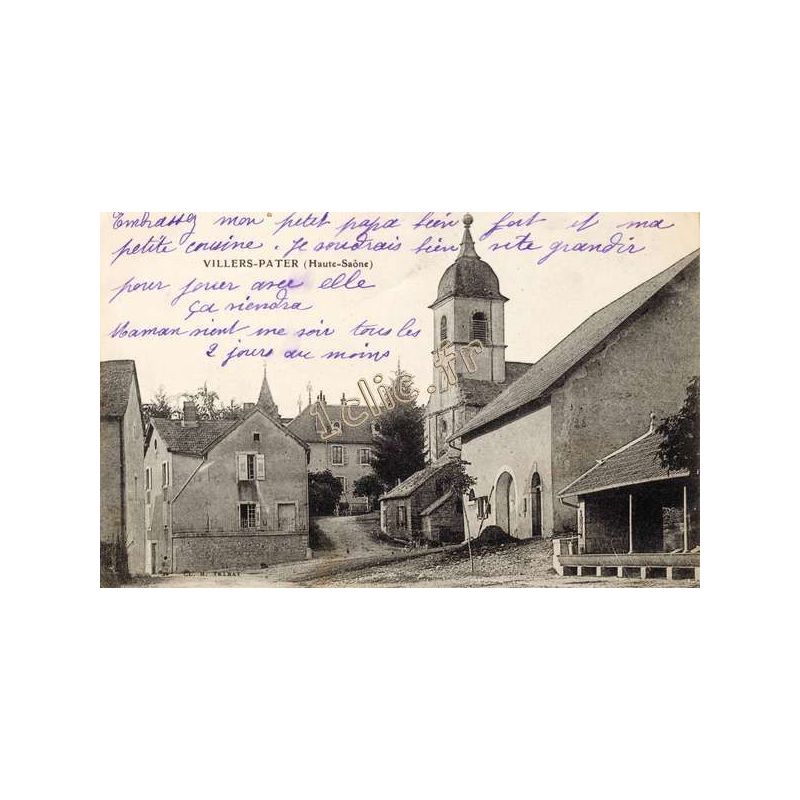 Embrassez mon petit papa bien fort et ma
petite cousine. Je voudrais bien vite grandir
VILLERS-PATER (Haute-Saône)
pour jouer avec elle
Ça viendra
Maman vient me voir tous les
2 jours au moins
1clic.fr